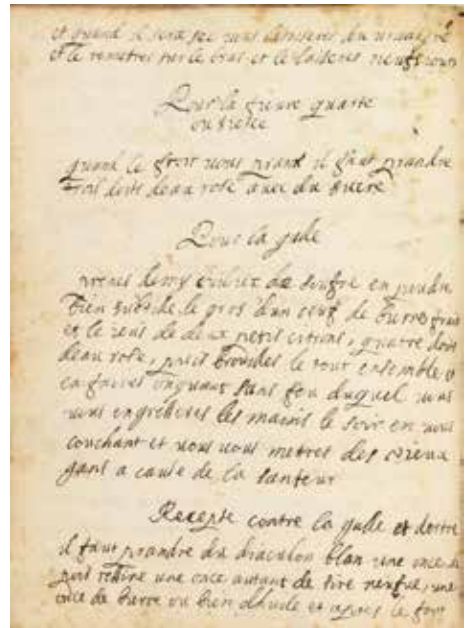 et quand il sera sec vous
et le remetres sur le bras et le laisseres neufs jours
Pour la fievre quarte
ou tierce
quand le froit vous prant il faut prandre
trois doits deau rose avec du sucre
Pour la galle
prenes demy de soufre en poudre
bien subtile le gros dun oeuf de burre frais
et le jeus de deux petis citrons, quatre doits
deau rose, puis brouilles le tout ensemble et
en faites onguant sans feu duquel vous
vous engresseres les mains le soir en vous
couchant et vous vous metres des vieux
gans a cause de la santeur
Recepte contre la galle et dertre
il faut prandre du diaculon blan une once de
poix resine une once autant de sire neufue, une
once de burre ou bien dhuile et apres le